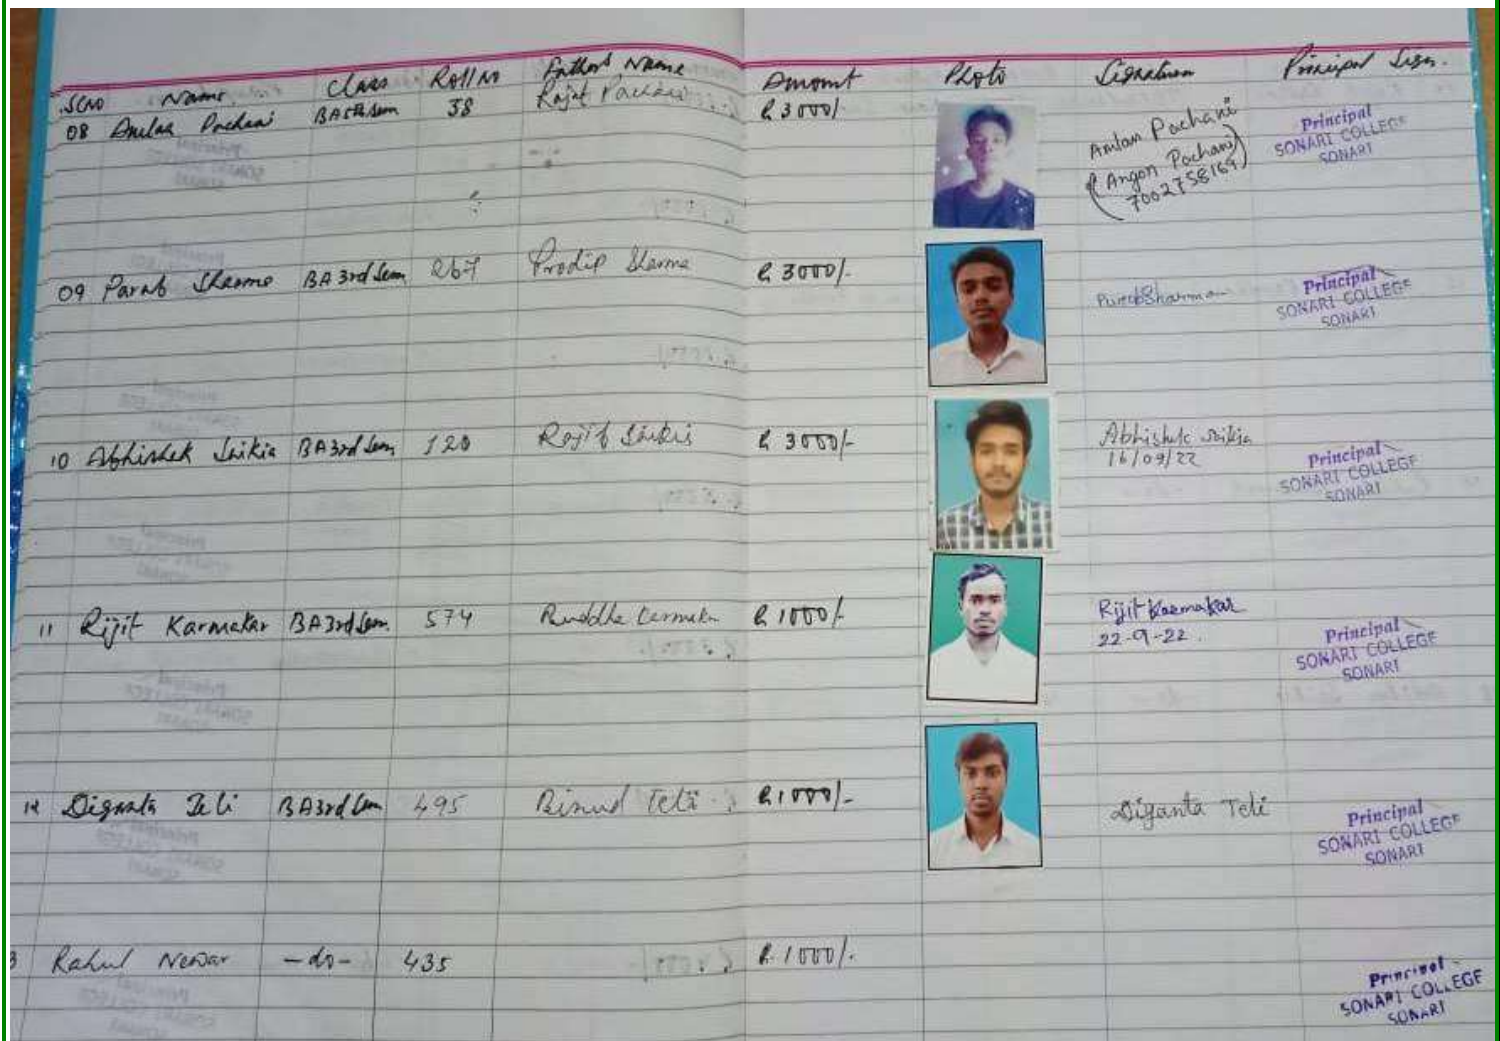 Sl.No Name Class Roll No Father Name Amount Photo Signature Principal Sign.
08 Amlan Pachani BA 5th Sem 38 Rajat Pachani ₹ 3000/- Amlan Pachani
(Angon Pachani)
7002758169
Principal
SONARI COLLEGE
SONARI
09 Parab Sharma BA 3rd Sem 267 Prodip Sharma ₹ 3000/-
Principal
SONARI COLLEGE
SONARI
10 Abhishek Saikia BA 3rd Sem 120 Rajib Saikia ₹ 3000/- Abhishek Saikia
16/09/22
Principal
SONARI COLLEGE
SONARI
11 Rijit Karmakar BA 3rd Sem. 574 Karmakar ₹ 1000/- Rijit Karmakar
22-9-22.
Principal
SONARI COLLEGE
SONARI
12 Diganta Teli BA 3rd Sem 495 Binud Teli ₹ 1000/- Diganta Teli
Principal
SONARI COLLEGE
SONARI
Rahul Newar -do- 435 ₹ 1000/-
Principal
SONARI COLLEGE
SONARI